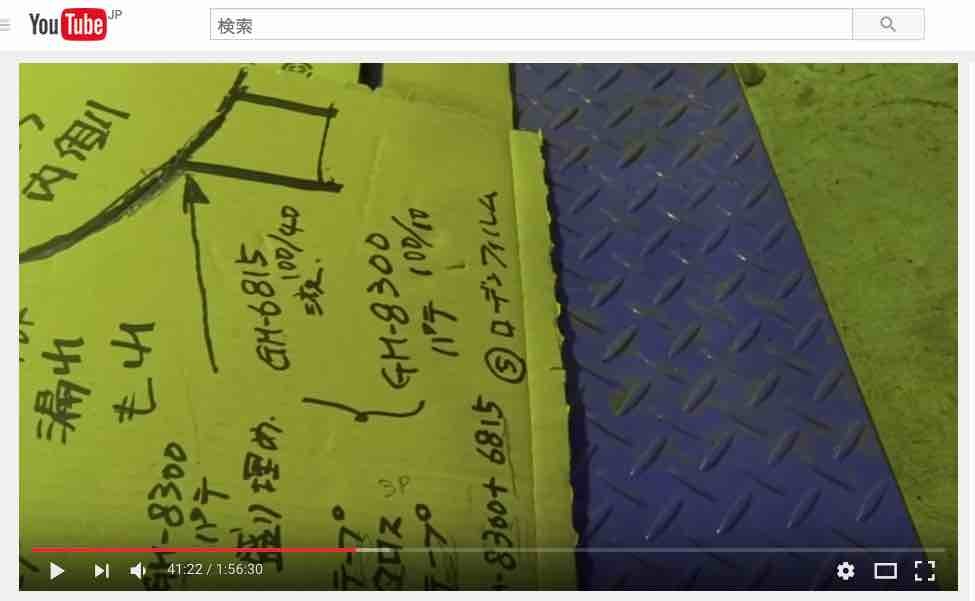 YouTube JP
検索
内側
漏れ
もれ
GM-6815
100/40
液
GM-8300
パテ
100/10
GM-8300
パテ
盛り埋め.
テープ
クロス
テープ
3P
-8300+6815
⑤ロデンフィルム
41:22 / 1:56:30